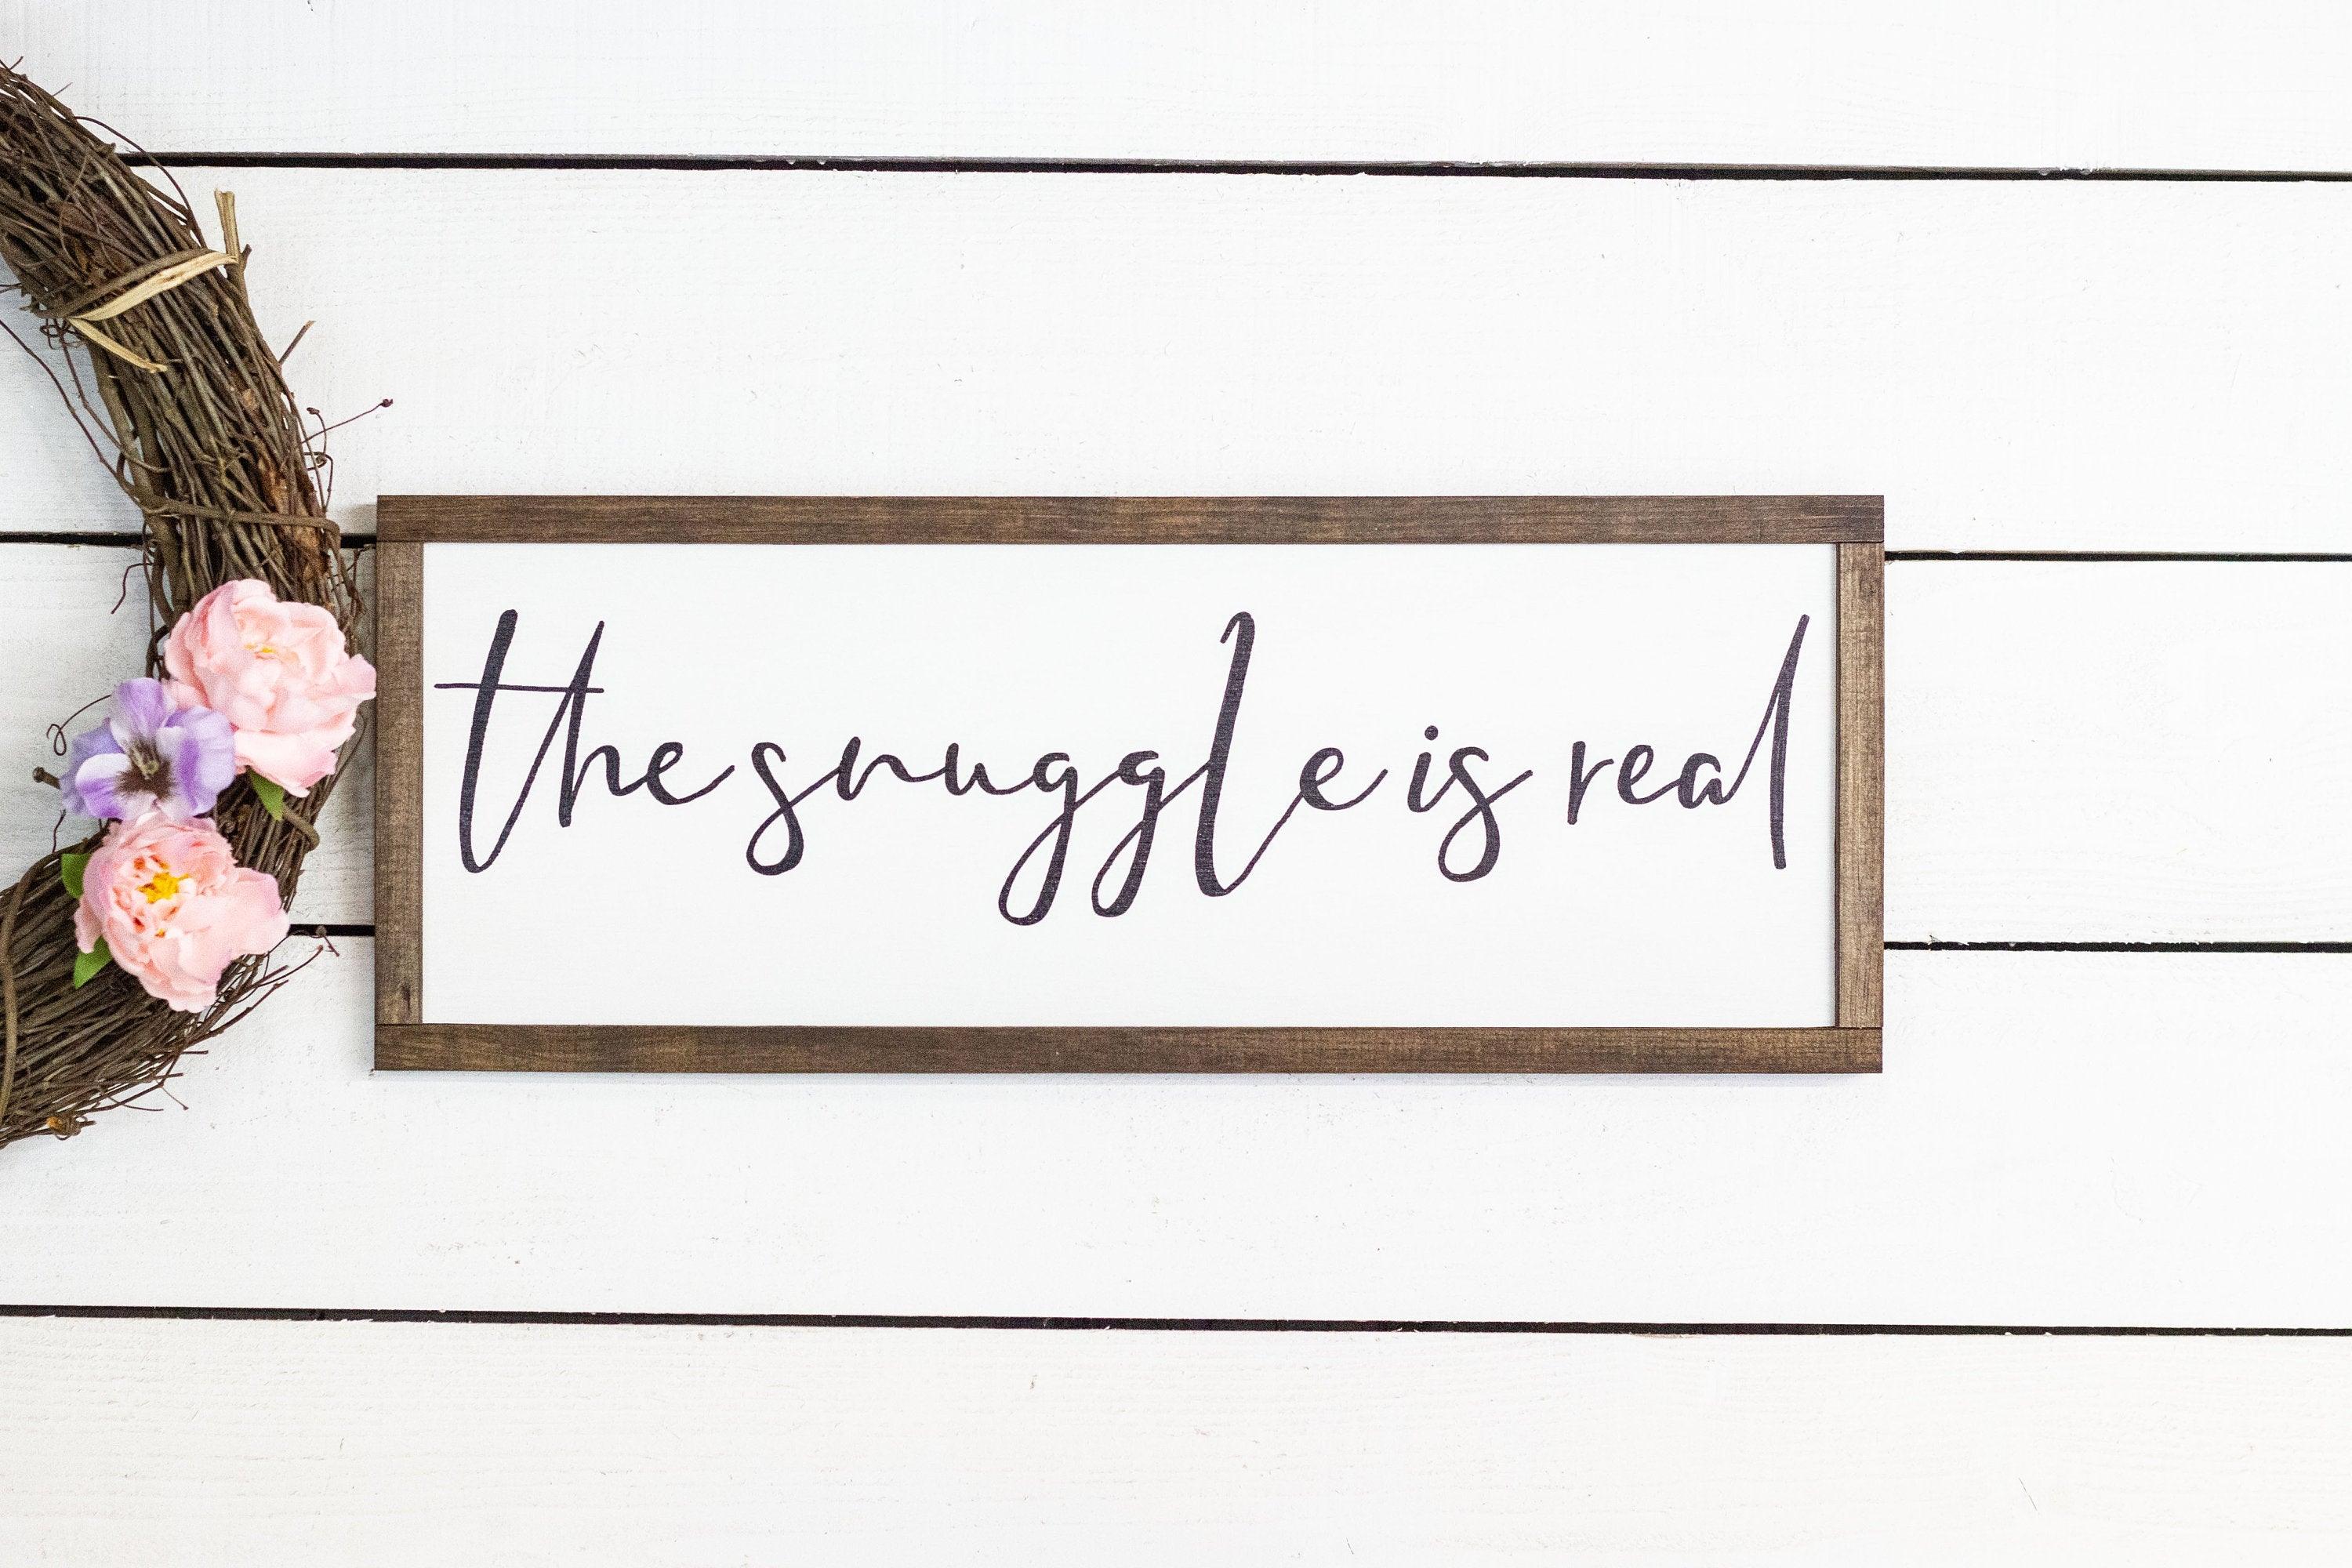 the snuggle is real